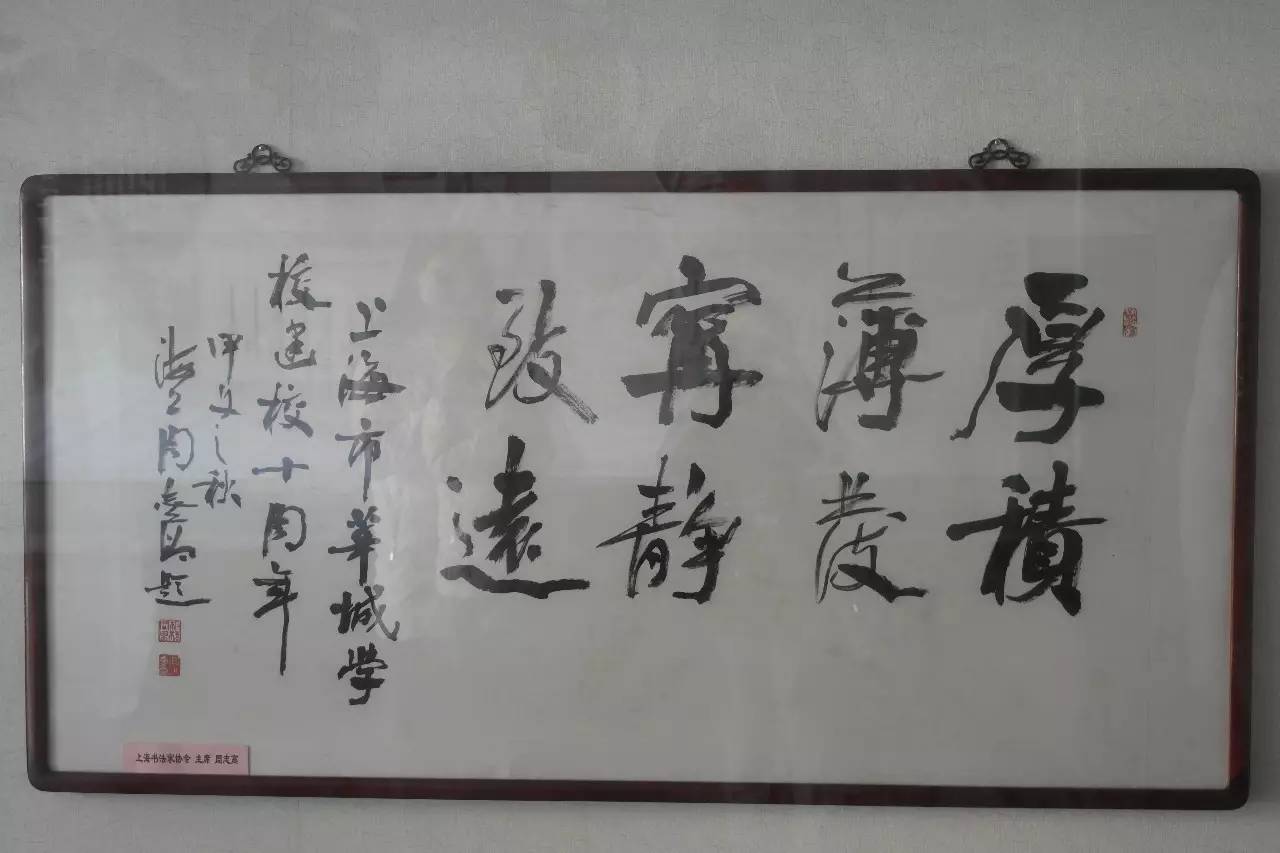 厚積
薄發
寧靜
致遠
上海市華城学
校建校十周年
甲午之秋
海上周志高题
上海书法家协会 主席 周志高